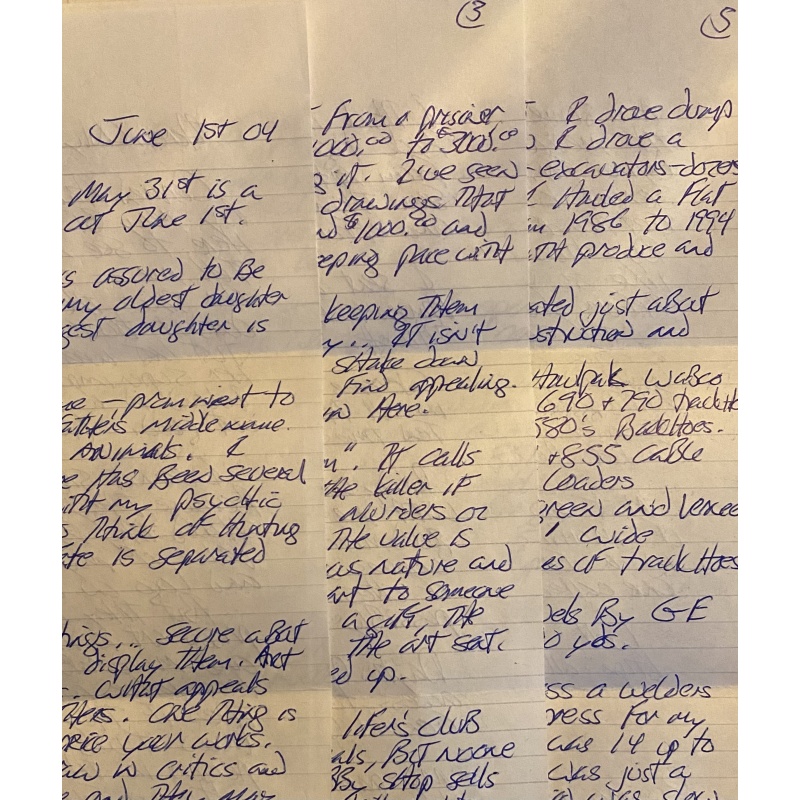 June 1st 04
May 31st is a
at June 1st.
s assured to Be
my oldest daughter
gest daughter is
e - promiest to
athers middle name.
Animals. I
e Has Been several
my psychic
s think of Hunting
te is separated
hings... secure aBat
display Them. Art
. What appeals
thers. One Thing is
your works.
aw in critics and
e and They may
3
From a prisoner
000.00 to $3000.00
it. I've seen
drawings That
$1000.00 and
eeping pace with
keeping Them
y... IT isn't
shake down
Find appealing.
n Here.
n". IT calls
the killer IF
Murders or
The value is
as nature and
art to someone
a gift, The
The art seat.
ed up.
lifer's CluB
als, But noone
By shop sells
5
I drove dump
I drove a
excavators-dozers
I Hauled a Flat
1986 to 1994
produce and
ated just aBat
struction and
Haulpak WaBco
690 + 790 trackH
580's BackHoes.
+855 CaBle
loaders
reen and
' wide
es of track Hoes
els By GE
0 yds.
ss a welders
ress For my
was 14 up to
was just a